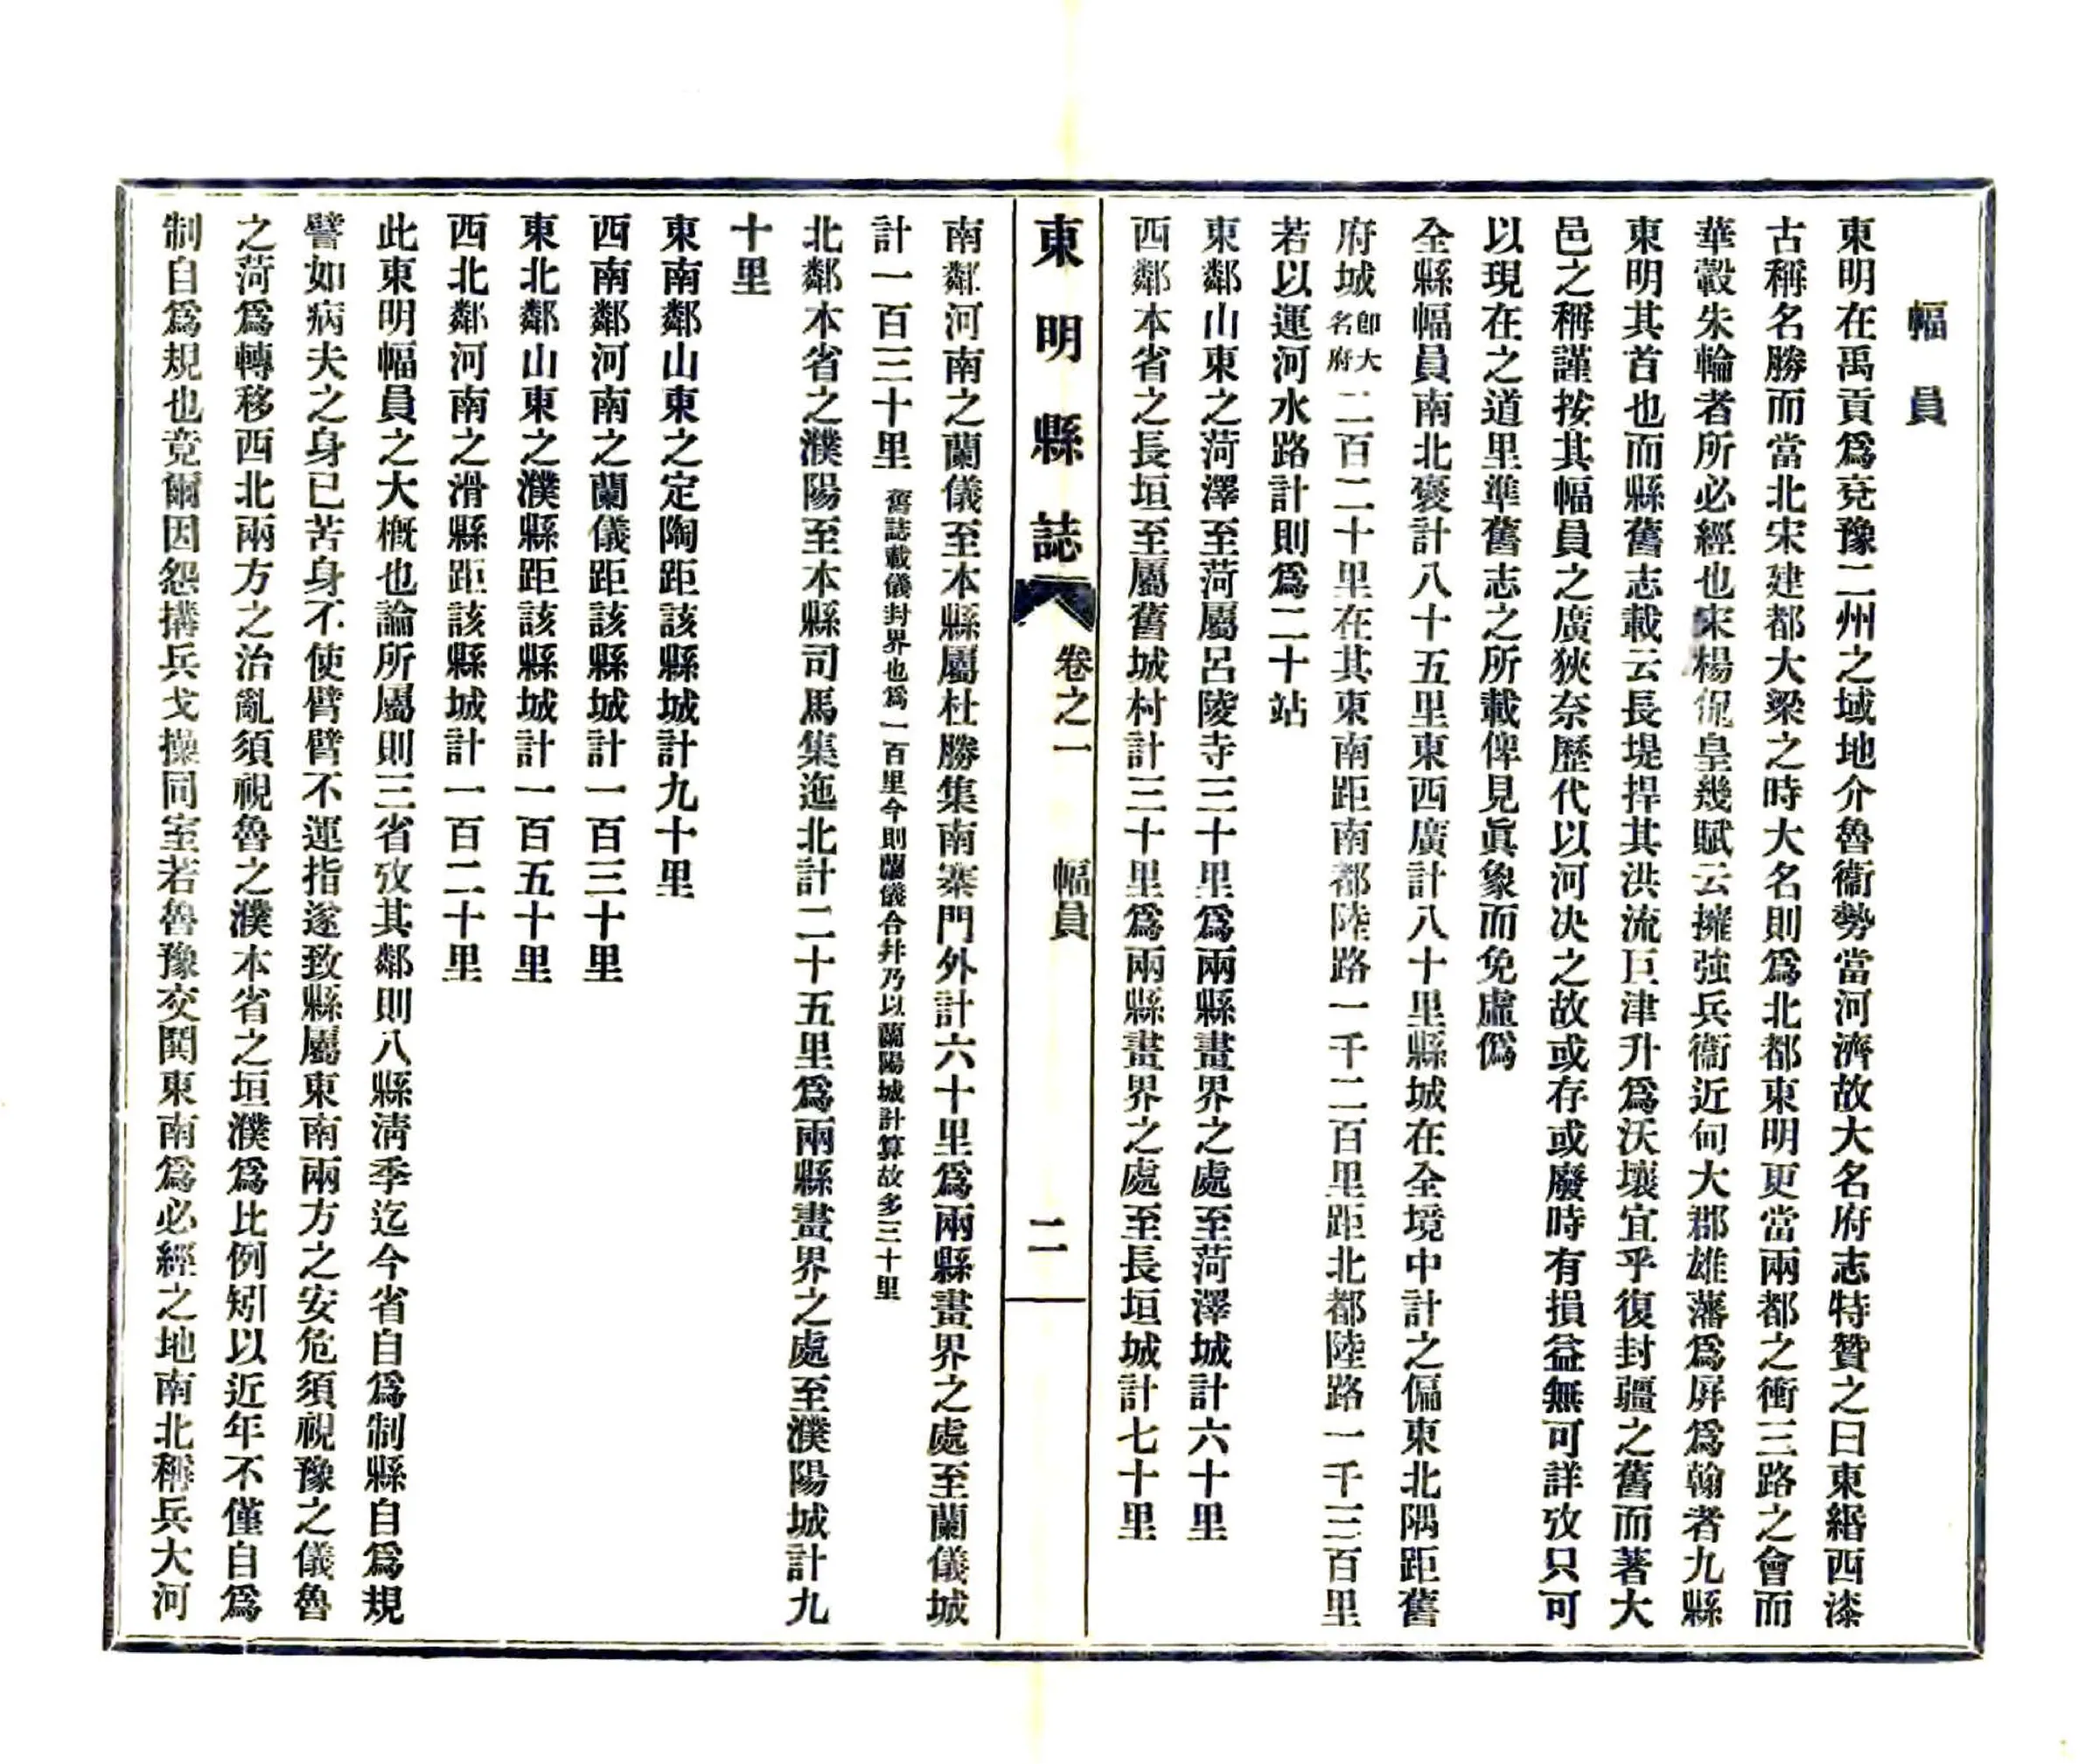 幅員
東明在禹貢爲兗豫二州之域地介魯衞勢當河濟故大名府志特贊之曰東緡西漆
古稱名勝而當北宋建都大梁之時大名則爲北都東明更當兩都之衝三路之會而
華轂朱輪者所必經也宋楊侃皇幾賦云擁強兵衞近甸大郡雄藩爲屏爲翰者九縣
東明其首也而縣舊志載云長堤捍其洪流巨津升爲沃壤宜乎復封疆之舊而著大
邑之稱謹按其幅員之廣狹奈歷代以河決之故或存或廢時有損益無可詳攷只可
以現在之道里準舊志之所載俾見眞象而免虛僞
全縣幅員南北袤計八十五里東西廣計八十里縣城在全境中計之偏東北隅距舊
府城卽大名府二百二十里在其東南距南都陸路一千二百里距北都陸路一千三百里
若以運河水路計則爲二十站
東鄰山東之菏澤至菏屬呂陵寺三十里爲兩縣畫界之處至菏澤城計六十里
西鄰本省之長垣至屬舊城村計三十里爲兩縣畫界之處至長垣城計七十里
東明縣誌 卷之一 幅員 二
南鄰河南之蘭儀至本縣屬杜勝集南寨門外計六十里爲兩縣畫界之處至蘭儀城
計一百三十里舊誌載儀封界也爲一百里今則蘭儀合幷乃以蘭陽城計算故多三十里
北鄰本省之濮陽至本縣司馬集迤北計二十五里爲兩縣畫界之處至濮陽城計九
十里
東南鄰山東之定陶距該縣城計九十里
西南鄰河南之蘭儀距該縣城計一百三十里
東北鄰山東之濮縣距該縣城計一百五十里
西北鄰河南之滑縣距該縣城計一百二十里
此東明幅員之大概也論所屬則三省攷其鄰則八縣淸季迄今省自爲制縣自爲規
譬如病夫之身已苦身不使臂臂不運指遂致縣屬東南兩方之安危須視豫之儀魯
之菏爲轉移西北兩方之治亂須視魯之濮本省之垣濮爲比例矧以近年不僅自爲
制自爲規也竟爾因怨搆兵戈操同室若魯豫交鬨東南爲必經之地南北稱兵大河